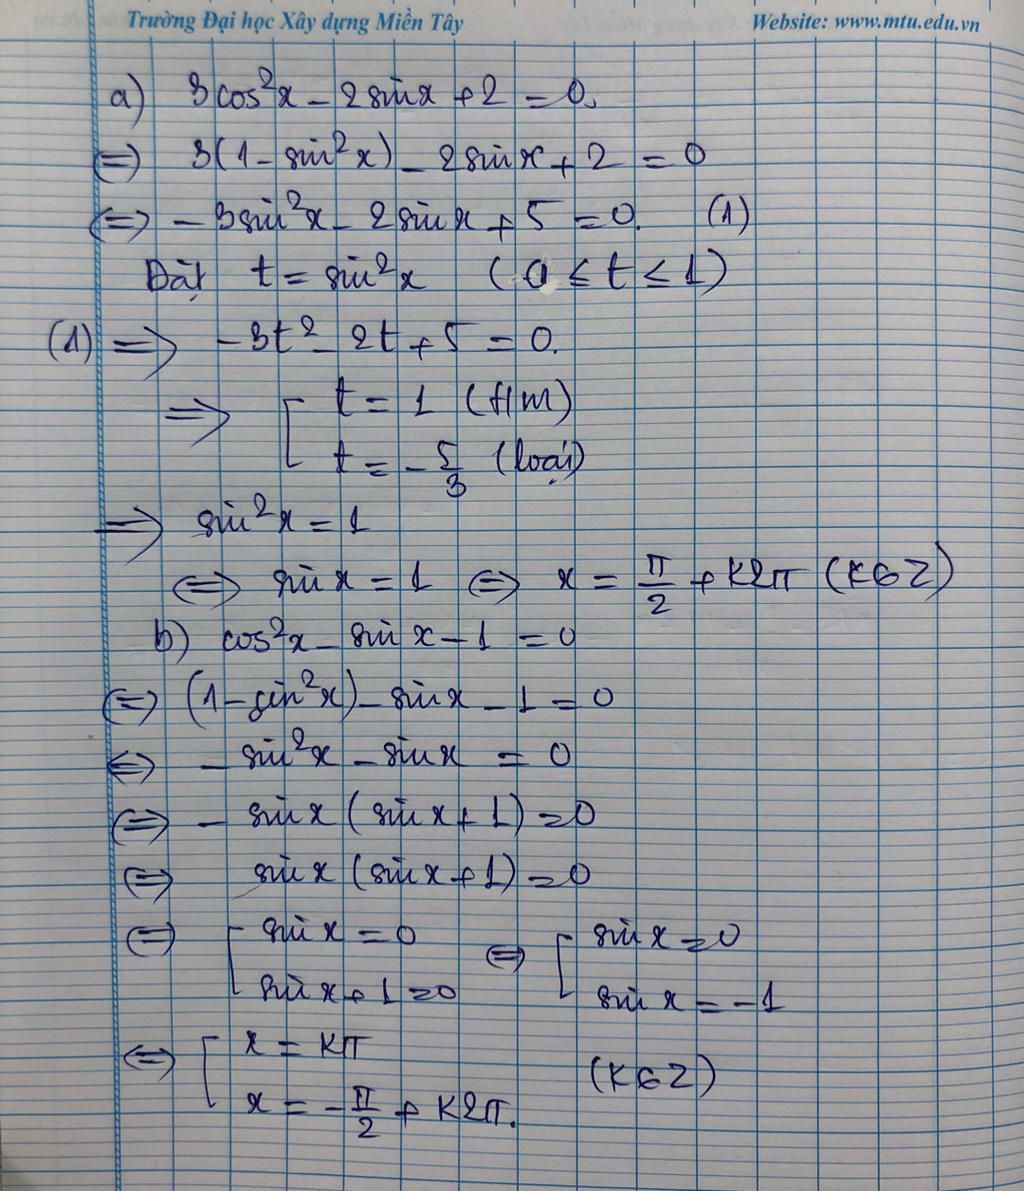 Trường Đại học Xây dựng Miền Tây Website: www.mtu.edu.vn
a) 3cos²x - 2sinx + 2 = 0.
⇔ 3(1 - sin²x) - 2sinx + 2 = 0
⇔ -3sin²x - 2sinx + 5 = 0. (1)
Đặt t = sin²x (0 ≤ t ≤ 1)
(1) ⇒ -3t² - 2t + 5 = 0.
⇒ [ t = 1 (t/m)
t = -5/3 (loại)
⇒ sin²x = 1
⇔ sinx = 1 ⇔ x = π/2 + K2π (K∈Z)
b) cos²x - sinx - 1 = 0
⇔ (1 - sin²x) - sinx - 1 = 0
⇔ - sin²x - sinx = 0
⇔ - sinx (sinx + 1) = 0
⇔ sinx (sinx + 1) = 0
⇔ [ sinx = 0 ⇔ [ sinx = 0
sinx + 1 = 0 sinx = -1
⇔ [ x = Kπ
x = -π/2 + K2π. (K∈Z)